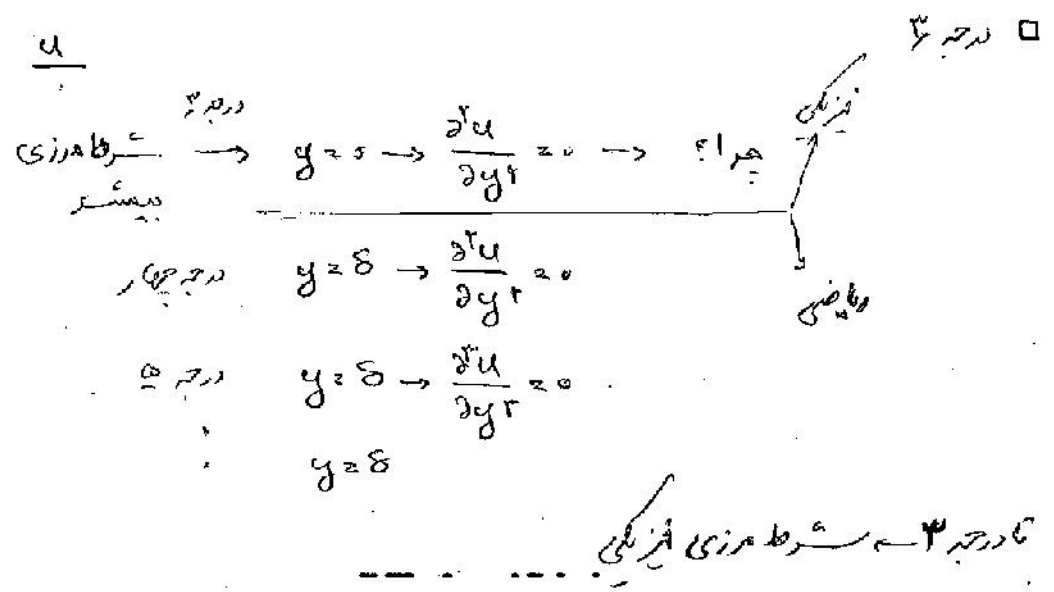 □ درجه ۳
u
شرط مرزی بیشتر → درجه ۳ y = 0 → ∂²u/∂y² = 0 → چرا؟ فیزیکی
ریاضی
درجه چهار y = δ → ∂²u/∂y² = 0
درجه ۵ y = δ → ∂³u/∂y³ = 0
⋮ y = δ
تا درجه ۳ ← شرط مرزی فیزیکی